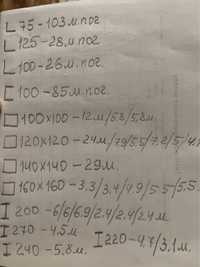 L 75 - 103 м.пог.
L 125 - 28 м.пог
L 100 - 26 м.пог.
[ 100 - 85 м.пог.
□ 100x100 - 12м/5.8/5.8м.
□ 120x120 - 24м/7.9/5.5/7.2/5/
□ 140x140 - 29м.
□ 160x160 - 3.3/3.4/4.9/5.5/5.5.
I 200 - 6/6/6.9/2.4/2.4/2.4м
I 270 - 4.5м I 220 - 4.7/3.1м.
I 240 - 5.8м.